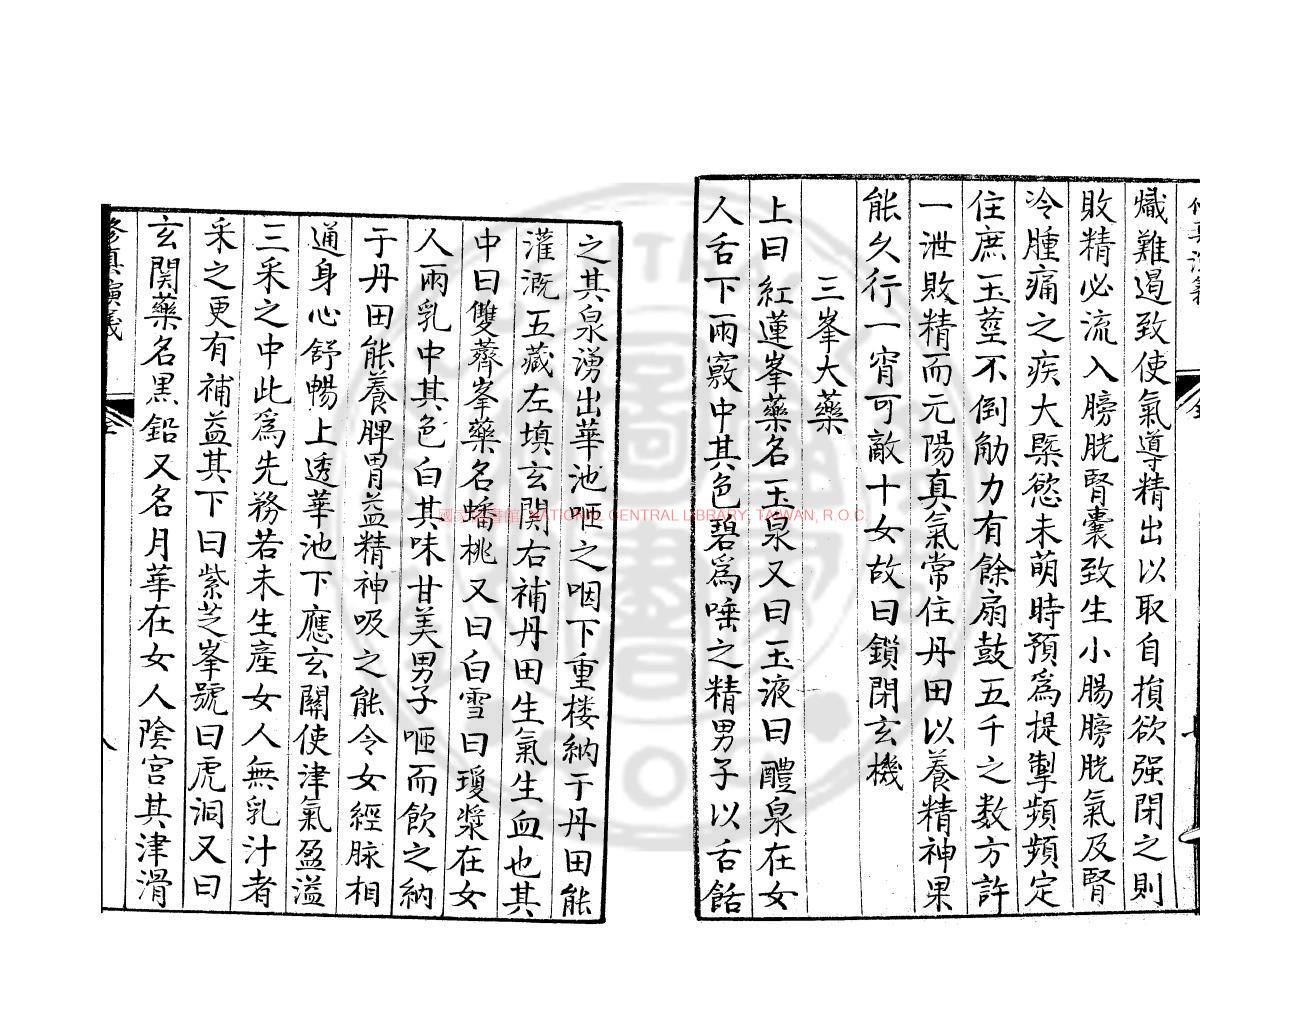 熾難遏致使氣導精出以取自損欲强閉之則
敗精必流入膀胱腎囊致生小腸膀胱氣及腎
冷腫痛之疾大槩慾未萌時預爲提掣頻頻定
住庶玉莖不倒觔力有餘扇鼓五千之数方許
一泄敗精而元陽真氣常住丹田以養精神果
能久行一宵可敵十女故曰鎖閉玄機
三峯大藥
上曰紅蓮峯藥名玉泉又曰玉液曰醴泉在女
人舌下兩竅中其色碧爲唾之精男子以舌餂
之其泉湧出華池咂之咽下重楼納于丹田能
灌溉五藏左填玄関右補丹田生氣生血也其
中曰雙薺峯藥名蟠桃又曰白雪曰瓊漿在女
人兩乳中其色白其味甘美男子咂而飲之納
于丹田能養脾胃益精神吸之能令女經脉相
通身心舒暢上透華池下應玄關使津氣盈溢
三采之中此爲先務若未生產女人無乳汁者
采之更有補益其下曰紫芝峯號曰虎洞又曰
玄関藥名黑鉛又名月華在女人陰宫其津滑
修真演義
國家圖書館 NATIONAL CENTRAL LIBRARY, TAIWAN, R.O.C